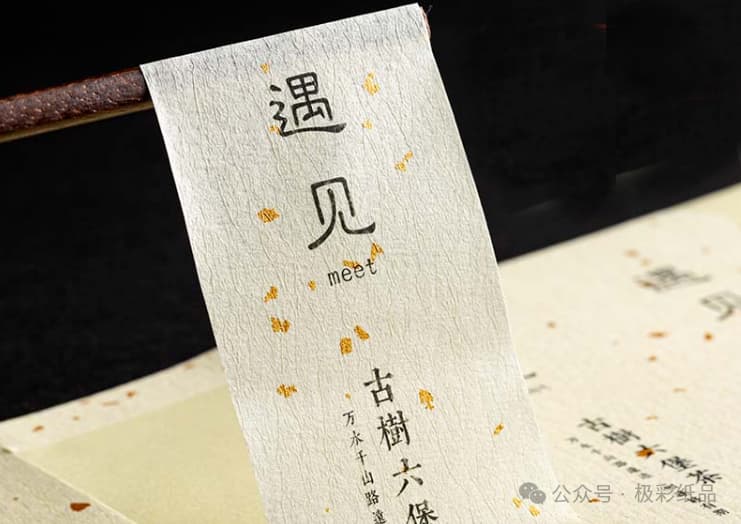 遇见
meet
古樹六保
万水千山路遠
遇见
古樹六保茶
公众号 · 极彩纸品